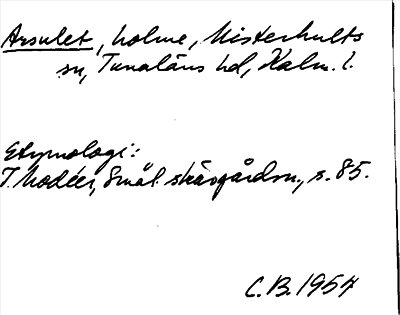 Arsulet, holme, Misterhults
sn, Tunaläns hd, Kalm. l.
Etymologi:
I. Modéer, Smål. skärgårdsn., s. 85.
C.B. 1957